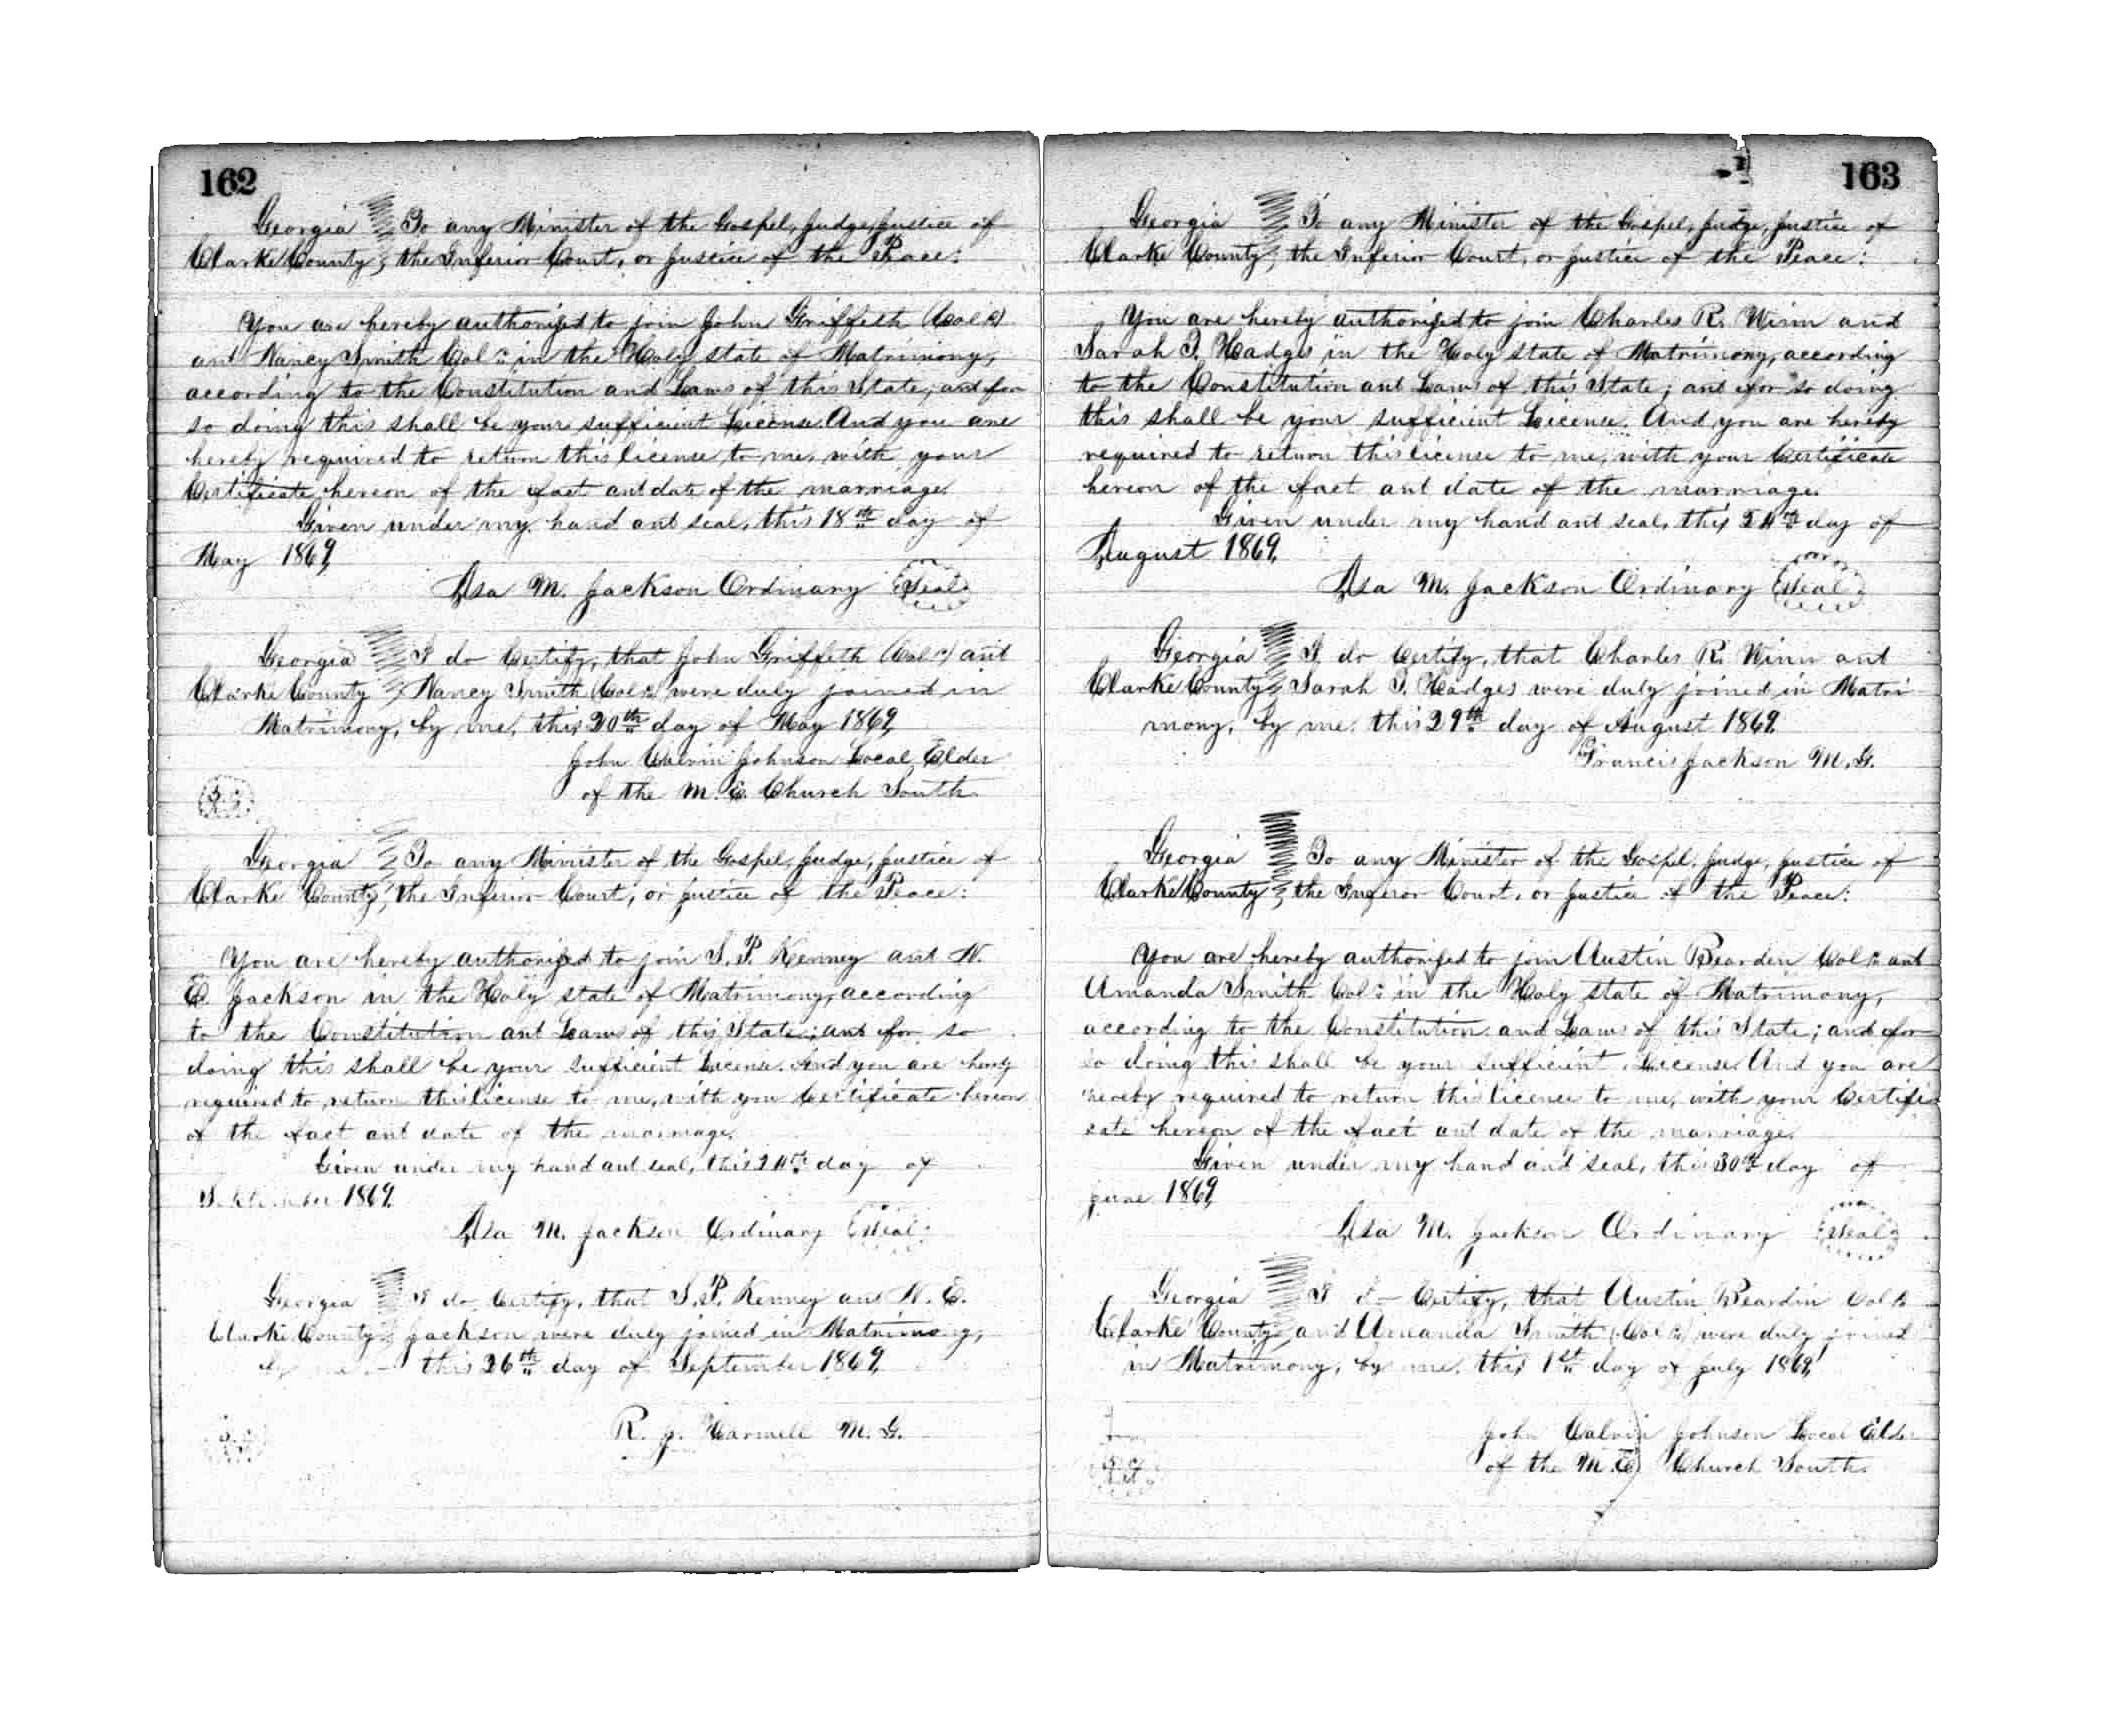 162
Georgia To any Minister of the Gospel, Judge, Justice of
Clarke County, the Inferior Court, or Justice of the Peace:
You are hereby authorized to join John Griffeth (Cold)
and Nancy Smith Cold in the Holy state of Matrimony,
according to the Constitution and Laws of this State; and for
so doing this shall be your sufficient License. And you are
hereby required to return this license to me, with your
Certificate hereon of the fact and date of the marriage.
Given under my hand and seal, this 18th day of
May 1869,
Asa M. Jackson Ordinary Seal
Georgia I do Certify, that John Griffeth (Cold) and
Clarke County Nancy Smith (Cold) were duly joined in
Matrimony, by me, this 20th day of May 1869,
John Calvin Johnson Local Elder
of the M. E. Church South
Georgia To any Minister of the Gospel, Judge, Justice of
Clarke County, the Inferior Court, or Justice of the Peace:
You are hereby authorized to join S. P. Kenney and N.
E. Jackson in the Holy state of Matrimony, according
to the Constitution and Laws of this State; and for so
doing this shall be your sufficient License. And you are hereby
required to return this license to me, with you Certificate hereon
of the fact and date of the marriage.
Given under my hand and seal, this 24th day of
September 1869.
Asa M. Jackson Ordinary Seal
Georgia I do Certify, that S. P. Kenney and N. E.
Clarke County Jackson were duly joined in Matrimony,
by me this 26th day of September 1869,
R. J. Harwell M. G.
163
Georgia To any Minister of the Gospel, Judge, Justice of
Clarke County, the Inferior Court, or Justice of the Peace:
You are hereby authorized to join Charles R. Winn and
Sarah T. Hadges in the Holy state of Matrimony, according
to the Constitution and Laws of this State; and for so doing
this shall be your sufficient License. And you are hereby
required to return this license to me, with your Certificate
hereon of the fact and date of the marriage.
Given under my hand and seal, this 24th day of
August 1869.
Asa M. Jackson Ordinary Seal
Georgia I do Certify, that Charles R. Winn and
Clarke County, Sarah T. Hadges were duly joined in Matri
mony, by me, this 29th day of August 1869.
Francis Jackson M. G.
Georgia To any Minister of the Gospel, Judge, Justice of
Clarke County, the Inferor Court, or Justice of the Peace:
You are hereby authorized to join Austin Beardin Cold and
Amanda Smith Cold in the Holy state of Matrimony,
according to the Constitution and Laws of this State; and for
so doing this shall be your sufficient License And you are
hereby required to return this license to me, with your Certifi
cate hereon of the fact and date of the marriage.
Given under my hand and seal, this 30th day of
June 1869,
Asa M. Jackson Ordinary Seal
Georgia I do Certify, that Austin Beardin Cold
Clarke County, and Amanda Smith (Cold) were duly joined
in Matrimony, by me, this 1st day of July 1869,
John Calvin Johnson Local Elder
of the M. E. Church South.